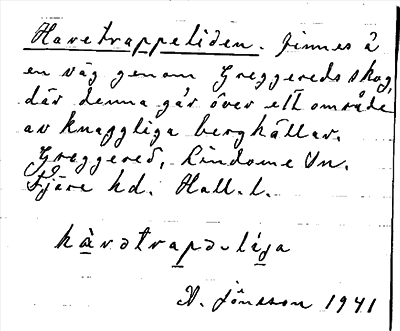 Havetrappeliden. finnes å
en väg genom Greggereds skog,
där denna går över ett område
av knaggliga berghällar.
Greggered, Lindome sn.
Fjäre hd. Hall. l.
hàvətrapə-lı́ɡa
V. Jönsson 1941